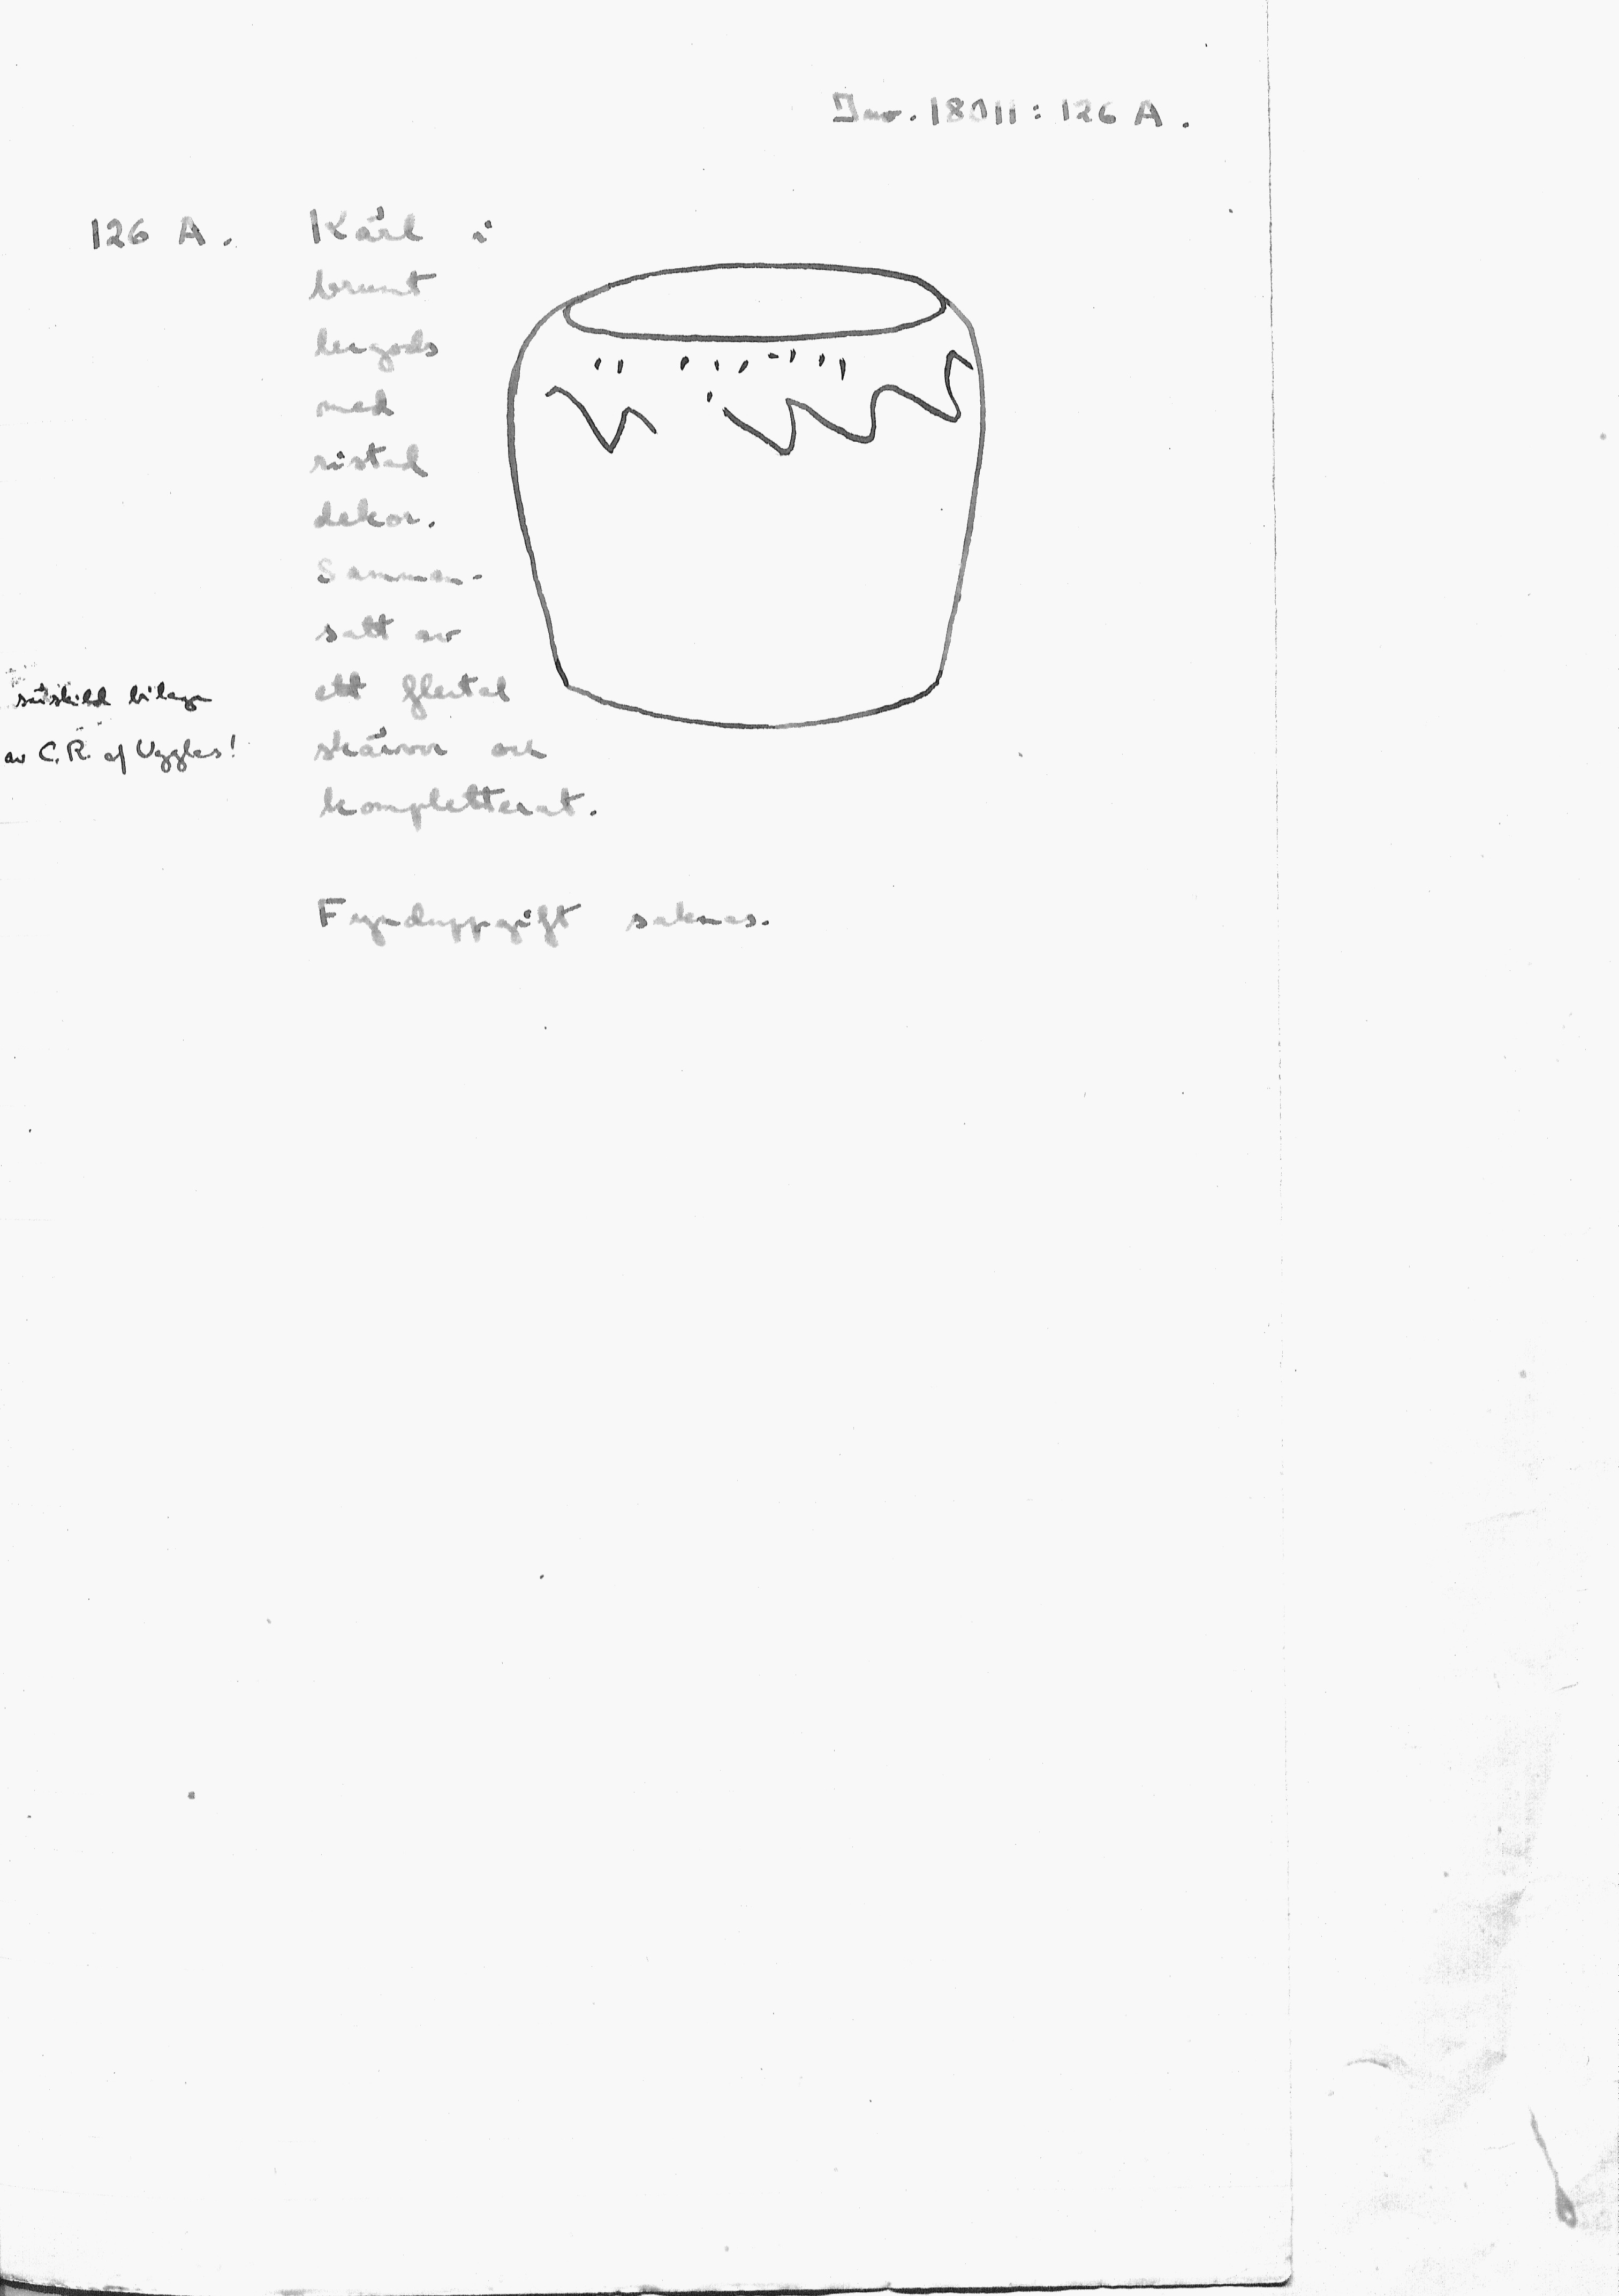 Inv. 18011: 126 A.
126 A. Kärl i
brunt
lergods
med
ristad
dekor.
Samman-
satt av
ett flertal
skärvor och
kompletterat.
särskild bilaga
av C.R. af Ugglas!
Fynduppgift saknas.